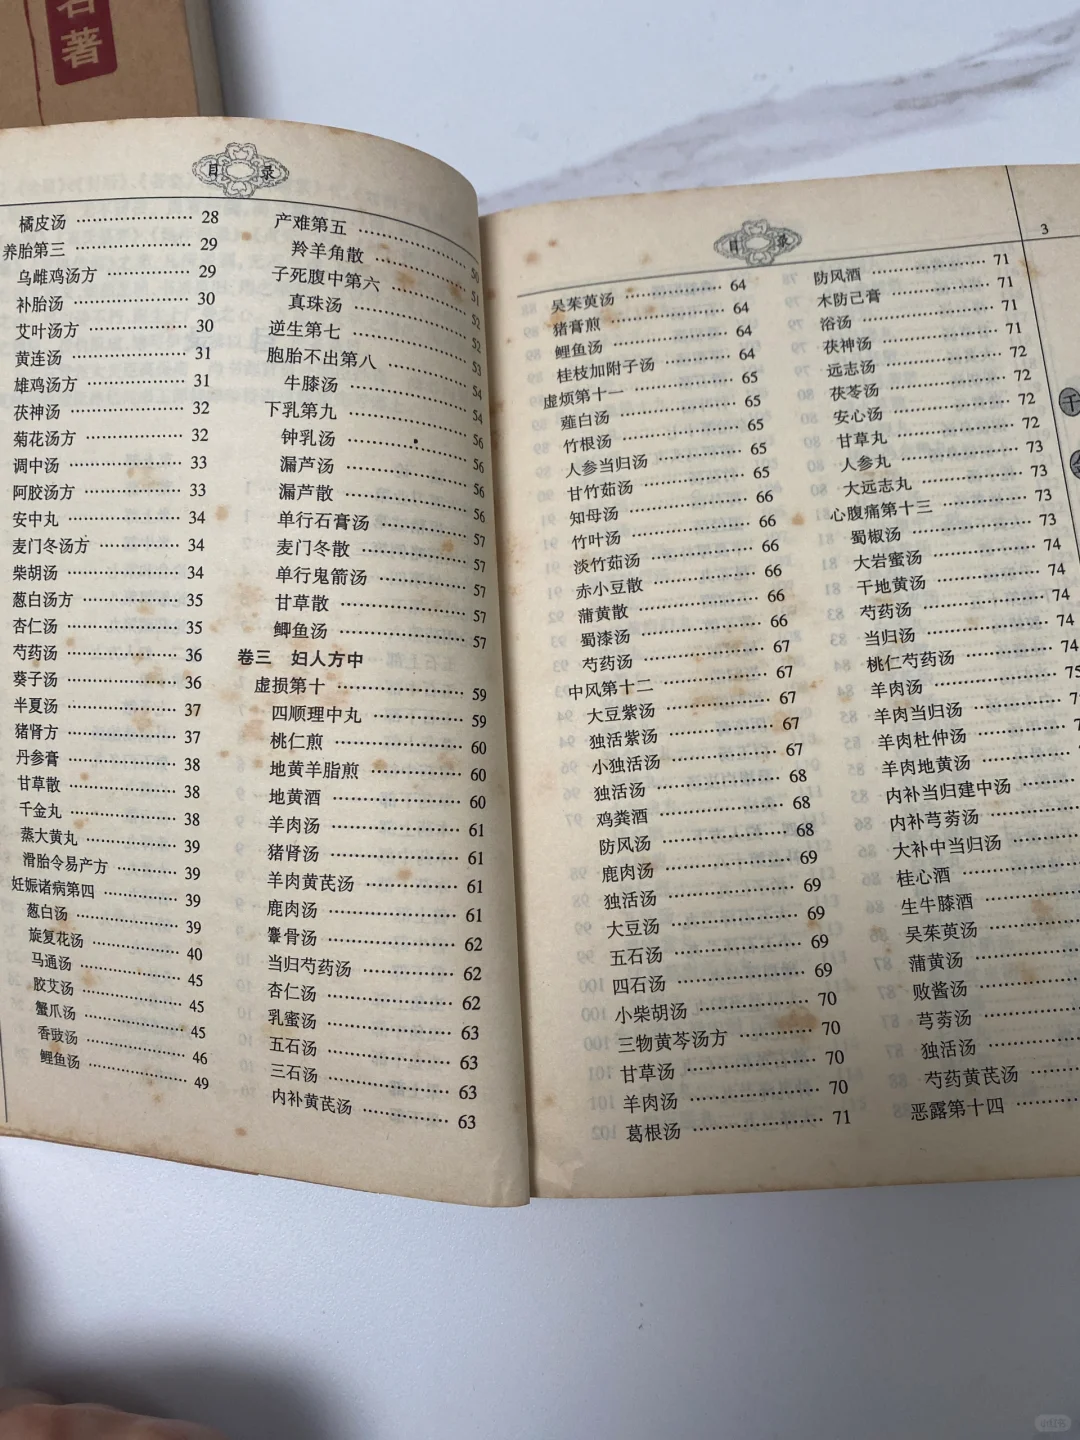 著
目录
橘皮汤 28
养胎第三 29
乌雌鸡汤方 29
补胎汤 30
艾叶汤方 30
黄连汤 31
雄鸡汤方 31
茯神汤 32
菊花汤方 32
调中汤 33
阿胶汤方 33
安中丸 34
麦门冬汤方 34
柴胡汤 34
葱白汤方 35
杏仁汤 35
芍药汤 36
葵子汤 36
半夏汤 37
猪肾方 37
丹参膏 38
甘草散 38
千金丸 38
蒸大黄丸 39
滑胎令易产方 39
妊娠诸病第四 39
葱白汤 39
旋复花汤 40
马通汤 45
胶艾汤 45
蟹爪汤 45
香豉汤 46
鲤鱼汤 49
产难第五 50
羚羊角散 51
子死腹中第六 52
真珠汤 52
逆生第七 53
胞胎不出第八 54
牛膝汤 54
下乳第九 56
钟乳汤 56
漏芦汤 56
漏芦散 56
单行石膏汤 57
麦门冬散 57
单行鬼箭汤 57
甘草散 57
鲫鱼汤 57
卷三 妇人方中
虚损第十 59
四顺理中丸 59
桃仁煎 60
地黄羊脂煎 60
地黄酒 60
羊肉汤 61
猪肾汤 61
羊肉黄芪汤 61
鹿肉汤 61
鏖骨汤 62
当归芍药汤 62
杏仁汤 62
乳蜜汤 63
五石汤 63
三石汤 63
内补黄芪汤 63
目录
3
吴茱萸汤 64
猪膏煎 64
鲤鱼汤 64
桂枝加附子汤 64
虚烦第十一 65
薤白汤 65
竹根汤 65
人参当归汤 65
甘竹茹汤 65
知母汤 66
竹叶汤 66
淡竹茹汤 66
赤小豆散 66
蒲黄散 66
蜀漆汤 66
芍药汤 67
中风第十二 67
大豆紫汤 67
独活紫汤 67
小独活汤 67
独活汤 68
鸡粪酒 68
防风汤 68
鹿肉汤 69
独活汤 69
大豆汤 69
五石汤 69
四石汤 69
小柴胡汤 70
三物黄芩汤方 70
甘草汤 70
羊肉汤 70
葛根汤 71
防风酒 71
木防己膏 71
浴汤 71
茯神汤 71
远志汤 72
茯苓汤 72
安心汤 72
甘草丸 72
人参丸 73
大远志丸 73
心腹痛第十三 73
蜀椒汤 73
大岩蜜汤 74
干地黄汤 74
芍药汤 74
当归汤 74
桃仁芍药汤 74
羊肉汤 75
羊肉当归汤
羊肉杜仲汤
羊肉地黄汤
内补当归建中汤
内补芎䓖汤
大补中当归汤
桂心酒
生牛膝酒
吴茱萸汤
蒲黄汤
败酱汤
芎䓖汤
独活汤
芍药黄芪汤
恶露第十四
千
小红书